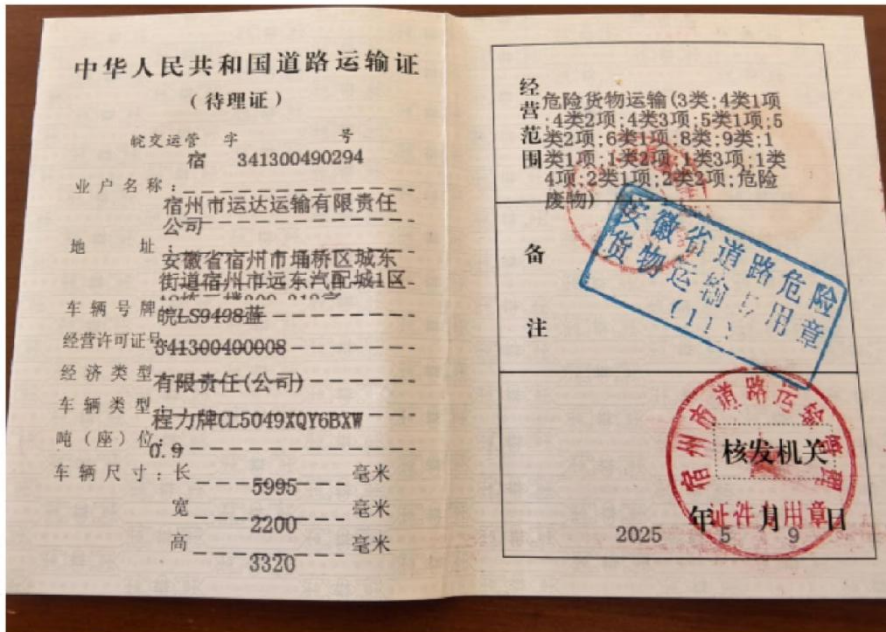 中华人民共和国道路运输证
(待理证)
皖交运管 字 号
宿 341300490294
业户名称:
宿州市运达运输有限责任
公司
地 址:
安徽省宿州市埇桥区城东
街道宿州市远东汽配城1区
车辆号牌
皖LS9498蓝
经营许可证号
341300400008
经济类型
有限责任(公司)
车辆类型:
程力牌CL5049XQY6BXW
吨(座)位:
0.9
车辆尺寸:长 5995 毫米
宽 2200 毫米
高 3320 毫米
经营范围
危险货物运输(3类;4类1项
;4类2项;4类3项;5类1项;5
类2项;6类1项;8类;9类;1
类1项;1类2项;1类3项;1类
4项;2类1项;2类2项;危险
废物)
备注
安徽省道路危险
货物运输专用章
(11)
宿州市道路运输管理
核发机关
证件专用章
2025年5月9日